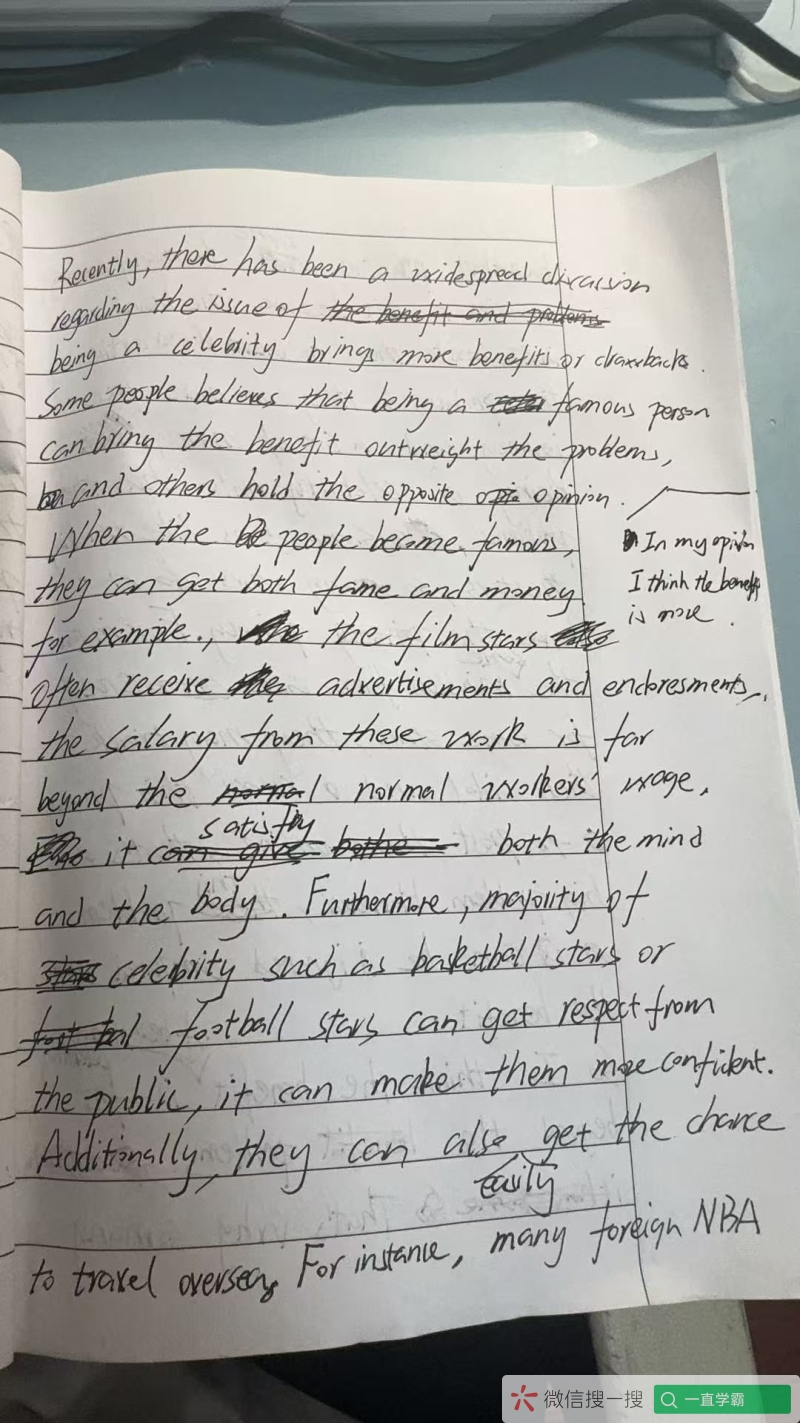 Recently, there has been a widespread discussion
regarding the issue of the benefit and problems
being a celebrity brings more benefits or drawbacks.
Some people believes that being a famous person
can bring the benefit outweight the problems,
and others hold the opposite opinion.
In my opinion
I think the benefit
is more.
When the people become famous,
they can get both fame and money
for example., the film stars
often receive advertisements and endoresments.,
the salary from these work is far
beyond the normal normal workers' wage,
satisfy
it can give bothe both the mind
and the body. Furthermore, majority of
stars celebrity such as basketball stars or
foot bal football stars can get respect from
the public, it can make them more confident.
Additionally, they can also get the chance
easily
to travel oversea, For instance, many foreign NBA
微信搜一搜
一直学霸